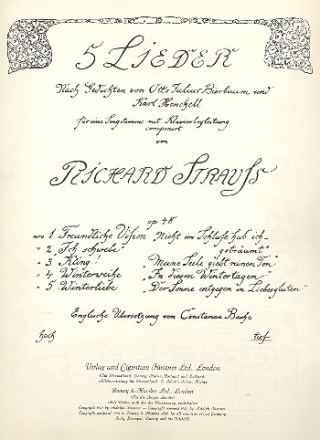 5 LIEDER
Nach Gedichten von Otto Julius Bierbaum und
Karl Henckell
für eine Singstimme mit Klavierbegleitung
componirt
von
RICHARD STRAUSS
op. 48
No 1 Freundliche Vision „Nicht im Schlafe hab ich
geträumt"
" 2 Ich schwebe
" 3 Kling! „Meine Seele giebt reinen Ton"
" 4 Winterweihe „In diesen Wintertagen"
" 5 Winterliebe „Der Sonne entgegen in Liebesgluten"
Englische Übersetzung von Constance Bache
hoch tief
Verlag und Eigentum Fürstner Ltd., London
Boosey & Hawkes Ltd., London